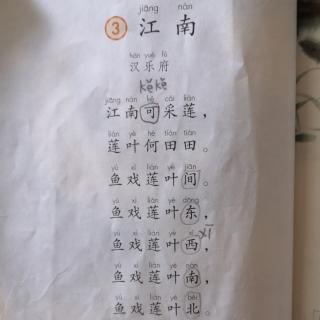 jiāng nán
③ 江 南
hàn yuè fǔ
汉乐府
kě kě
jiāng nán kě cǎi lián
江南可采莲，
lián yè hé tián tián
莲叶何田田。
yú xì lián yè jiān
鱼戏莲叶间。
yú xì lián yè dōng
鱼戏莲叶东，
yú xì lián yè xī
鱼戏莲叶西，
xī
yú xì lián yè nán
鱼戏莲叶南，
yú xì lián yè běi
鱼戏莲叶北。